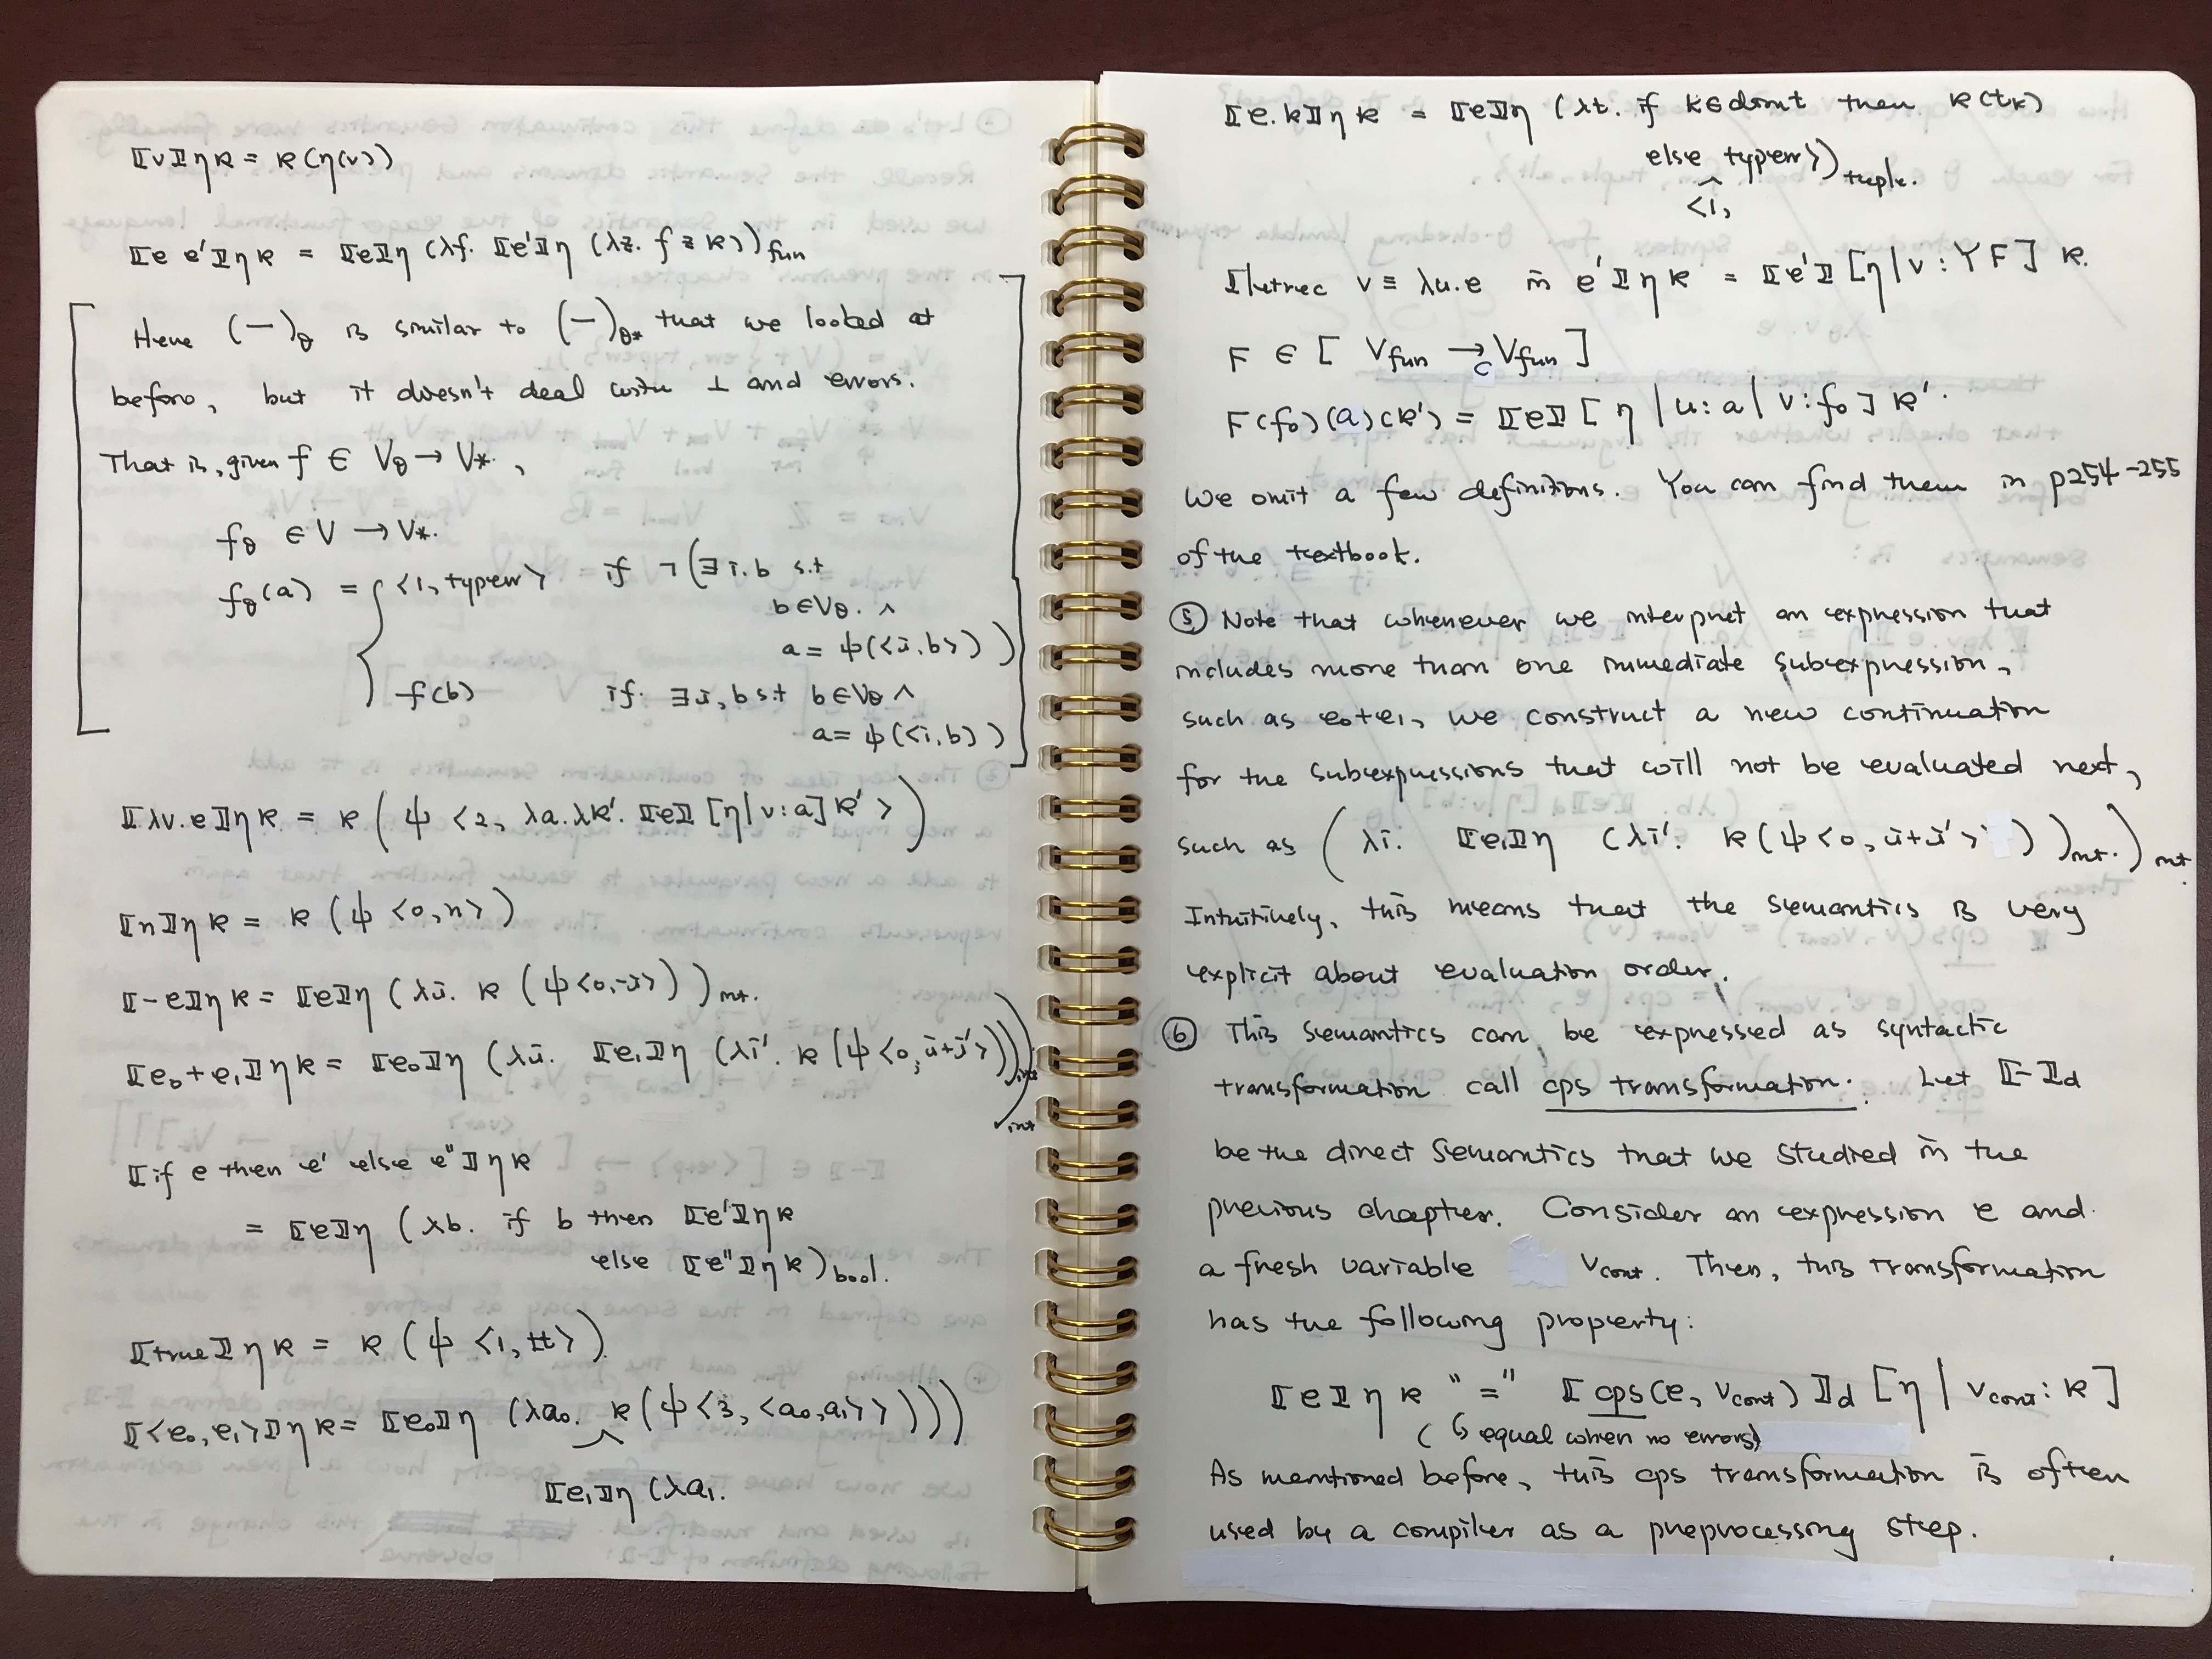 ⟦v⟧ηκ = κ(η(v))
⟦e e'⟧ηκ = ⟦e⟧η (λf. ⟦e'⟧η (λz. f z κ))fun
Here (—)θ is similar to (—)θ* that we looked at
before, but it doesn't deal with ⊥ and errors.
That is, given f ∈ Vθ → V*,
fθ ∈ V → V*.
fθ(a) = { <1, typerr> if ¬(∃i.b s.t
b∈Vθ. ∧
a = ψ(<i,b>))
f(b) if ∃i,b s.t b∈Vθ ∧
a= ψ(<i,b))
⟦λv.e⟧ηκ = κ(ψ <2, λa.λκ'. ⟦e⟧[η|v:a]κ'>)
⟦n⟧ηκ = κ(ψ <0,n>)
⟦-e⟧ηκ = ⟦e⟧η (λi. κ(ψ<0,-i>))int.
⟦e₀+e₁⟧ηκ = ⟦e₀⟧η (λi. ⟦e₁⟧η (λi'. κ(ψ<0,i+i'>))int)int
⟦if e then e' else e''⟧ηκ
= ⟦e⟧η (λb. if b then ⟦e'⟧ηκ
else ⟦e''⟧ηκ)bool.
⟦true⟧ηκ = κ(ψ <1,tt>)
⟦<e₀,e₁>⟧ηκ = ⟦e₀⟧η (λa₀. κ(ψ<3, <a₀,a₁>>)))
⟦e₁⟧η (λa₁.
⟦e.k⟧ηκ = ⟦e⟧η (λt. if k∈dom t then κ(tₖ)
else typerr>)tuple.
<1,
⟦letrec v ≡ λu.e in e'⟧ηκ = ⟦e'⟧[η|v:YF] κ.
F ∈ [ Vfun →c Vfun ]
F(f₀)(a)(κ') = ⟦e⟧[η|u:a|v:f₀] κ'.
We omit a few definitions. You can find them in p254-255
of the textbook.
⑤ Note that whenever we interpret an expression that
includes more than one immediate subexpression,
such as e₀+e₁, we construct a new continuation
for the subexpressions that will not be evaluated next,
such as (λi. ⟦e₁⟧η (λi'. κ(ψ<0,i+i'>))int.)int
Intuitively, this means that the semantics is very
explicit about evaluation order.
⑥ This semantics can be expressed as syntactic
transformation call cps transformation. Let ⟦-⟧d
be the direct semantics that we studied in the
previous chapter. Consider an expression e and
a fresh variable vcont. Then, this transformation
has the following property:
⟦e⟧ηκ "=" ⟦cps(e, vcont)⟧d [η|vcont:κ]
(↳ equal when no errors)
As mentioned before, this cps transformation is often
used by a compiler as a preprocessing step.